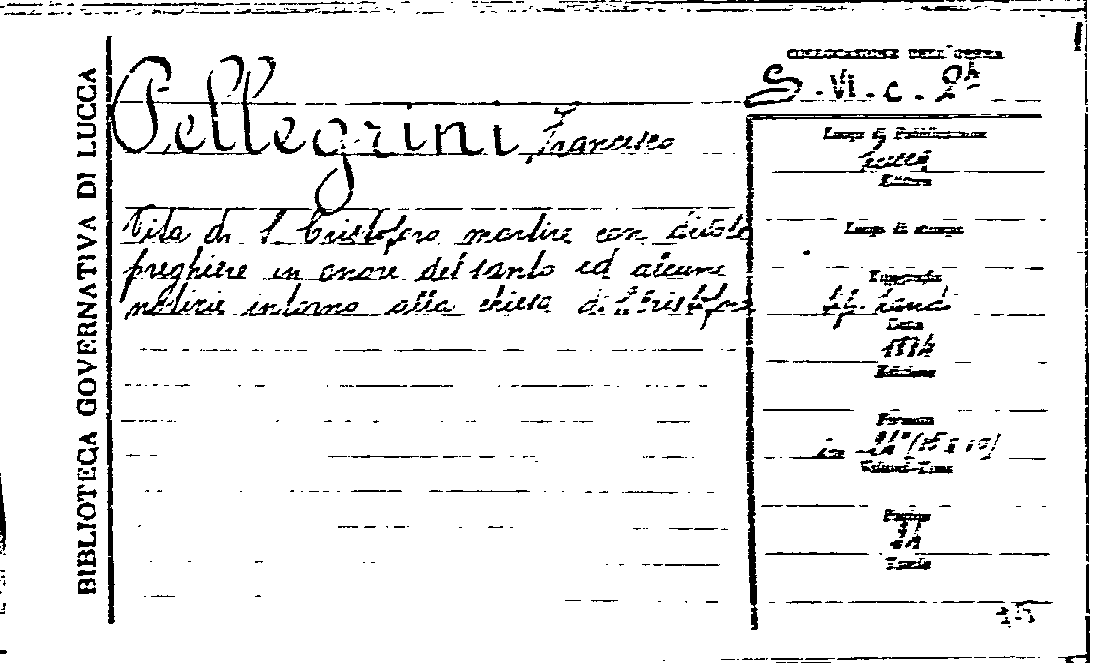 BIBLIOTECA GOVERNATIVA DI LUCCA
COLLOCAZIONE DELL'OPERA
S. VI. c. 24
Pellegrini, Francesco
Vita di S. Cristoforo martire con divote
preghiere in onore del santo ed alcune
notizie intorno alla chiesa di S. Cristoforo
Luogo di Pubblicazione
Editore
Luogo di stampa
Tipografo
tip. Landi
Data
Edizione
Formato
in
Volumi-Tomo
Pagine
24
Tavole